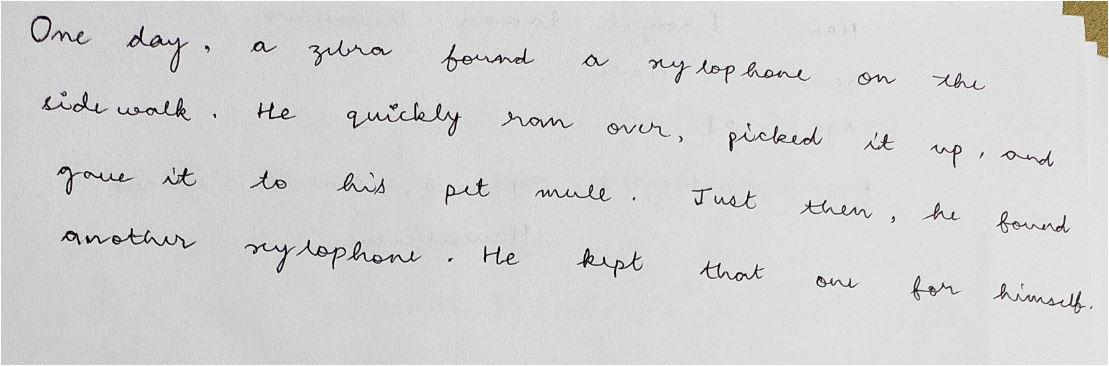 One day, a zebra found a xylophone on the
sidewalk. He quickly ran over, picked it up, and
gave it to his pet mule. Just then, he found
another xylophone. He kept that one for himself.